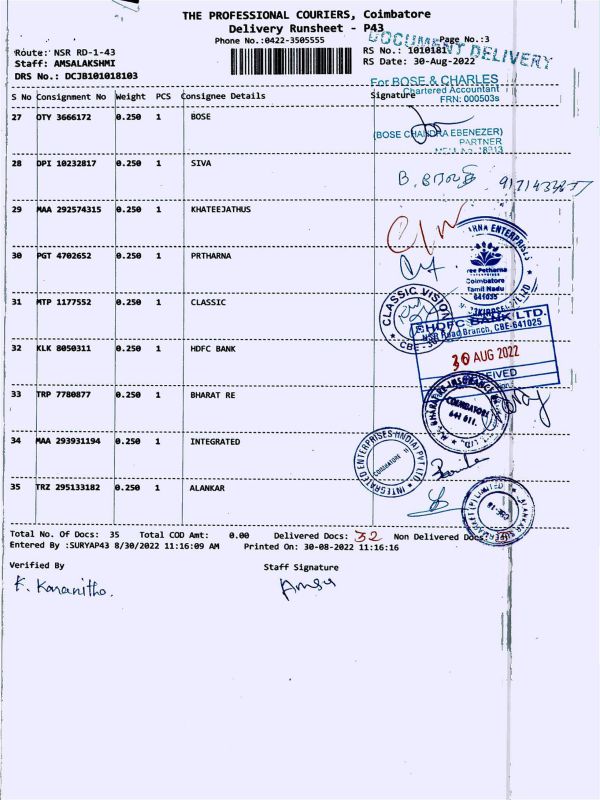 THE PROFESSIONAL COURIERS, Coimbatore
Delivery Runsheet - P43
Phone No.:0422-3505555
Page No.:3
DOCUMENT DELIVERY
Route: NSR RD-1-43
RS No.: 1010181
Staff: AMSALAKSHMI
RS Date: 30-Aug-2022
DRS No.: DCJB101018103
For BOSE & CHARLES
Chartered Accountant
FRN: 000503s
S No Consignment No Weight PCS Consignee Details Signature
27 OTY 3666172 0.250 1 BOSE
(BOSE CHANDRA EBENEZER)
PARTNER
28 DPI 10232817 0.250 1 SIVA
29 MAA 292574315 0.250 1 KHATEEJATHUS
30 PGT 4702652 0.250 1 PRTHARNA
ree Petharna
ENTERPRISES
Coimbatore
Tamil Nadu
641035
31 MTP 1177552 0.250 1 CLASSIC
CLASSIC VISION
CBE-
32 KLK 8050311 0.250 1 HDFC BANK
HDFC BANK LTD.
NSR Road Branch, CBE-641025
30 AUG 2022
33 TRP 7780877 0.250 1 BHARAT RE
COIMBATORE
641 011.
34 MAA 293931194 0.250 1 INTEGRATED
INTEGRATED ENTERPRISES (INDIA) PVT LTD
COIMBATORE
35 TRZ 295133182 0.250 1 ALANKAR
ALANKAR SUPERMARKET (P) LIMITED
Total No. Of Docs: 35 Total COD Amt: 0.00 Delivered Docs: 32 Non Delivered Docs
Entered By :SURYAP43 8/30/2022 11:16:09 AM Printed On: 30-08-2022 11:16:16
Verified By Staff Signature
Amsa